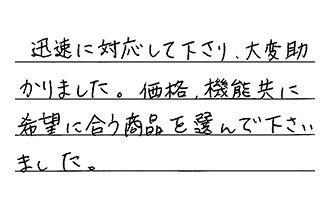 迅速に対応して下さり、大変助
かりました。価格、機能共に
希望に合う商品を選んで下さい
ました。